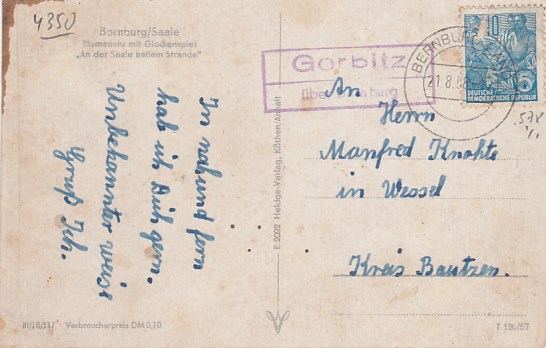 4350
Bernburg/Saale
Blumenuhr mit Glockenspiel
„An der Saale hellem Strande"
In nah und fern
hab ich Dich gern.
Unbekannter weise
Gruß Ich.
III/18/117 Verbraucherpreis DM 0,10
E 2092 Heldge-Verlag, Köthen/Anhalt
Gorbitz
über Bernburg
BERNBURG
21.8.58
10
DEUTSCHE
DEMOKRATISCHE REPUBLIK
An
Herrn
Manfred Knohte
in Wessel
Kreis Bautzen.
T 120/57